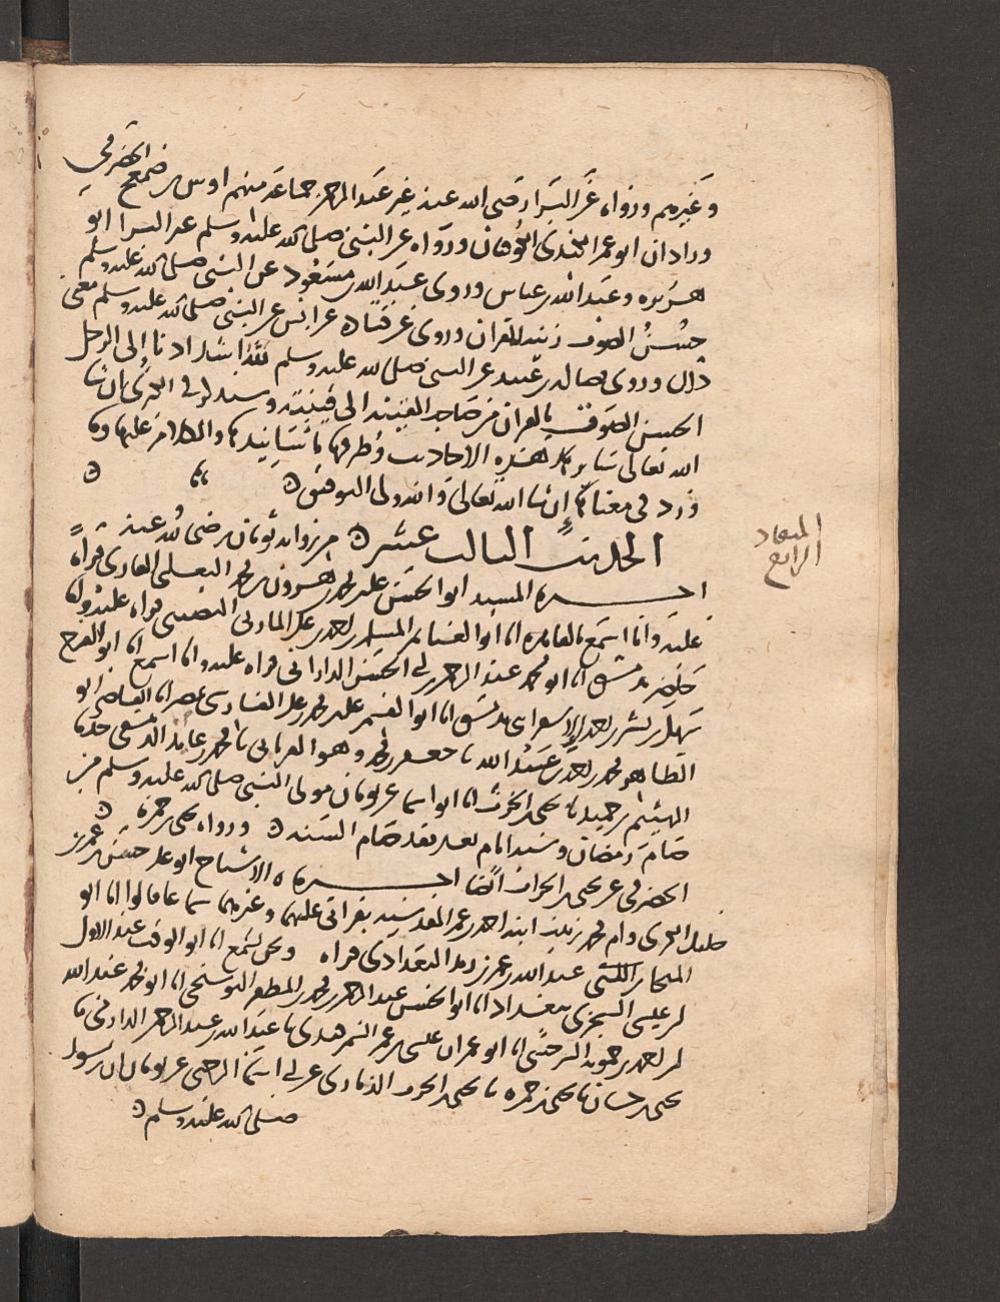 الحضرمي
وغيرهم ورواه عن البراء رضي الله عنه غير عبد الرحمن جماعة منهم اوس بن ضمعج
وزاذان ابو عمر الكندي الكوفيان ورواه عن النبي صلى الله عليه وسلم غير البراء ابو
هريره وعبد الله بن عباس وروى عبد الله بن مسعود عن النبي صلى الله عليه وسلم
حسن الصوت زينة القرآن وروى عن قتادة عن انس عن النبي صلى الله عليه وسلم معنى
ذلك وروى فضالة بن عبيد عن النبي صلى الله عليه وسلم لله اشد اذنا إلى الرجل
الحسن الصوت بالقرآن من صاحب القينة الى قينته وسنذكر في ان شا
الله تعالى سائر هذه الاحاديث وطرقها باسانيدها والكلام عليها وما
ورد في معناها إن شا الله تعالى والله ولي التوفيق
الحديث الثالث عشر من رواية ثوبان رضي الله عنه
اخبرنا المسند ابو الحسن علي بن محمد بن هرون بن محمد الثعلبي القارئ قراةً
عليه وانا اسمع بالقاهرة انا ابو الغنائم المسلم بن احمد بن علي المازني النصيبي قراه عليه وانا
حاضر بدمشق انا ابو محمد عبد الرحمن بن ابي الحسن الداراني قراه عليه وانا اسمع انا ابو الفرج
سهل بن بشر بن احمد الاسفرايني بدمشق انا ابو القسم علي بن محمد بن علي الفارسي بمصر انا القاضي ابو
الطاهر محمد بن احمد بن عبد الله نا جعفر بن محمد وهو الفريابي نا محمد بن عايذ الدمشقي حدثنا
الهيثم بن حميد نا يحيى بن الحرث نا ابو اسما عن ثوبان مولى النبي صلى الله عليه وسلم من
صام رمضان وستة ايام بعده فقد صام السنه ورواه يحيى بن حمزة
الحضرمي عن يحيى بن الحرث ايضًا اخبرناه الاشياخ ابو علي حسن بن عمر بن
خليل الكردي وام محمد زينب ابنة احمد بن عمر المقدسية بقراتي عليهما وغيرهما سماعا قالوا انا ابو
المنجا بن اللتي عبد الله بن عمر بن زيد البغدادي قراه ونحن نسمع انا ابو الوقت عبد الاول
بن عيسى السجزي ببغداد انا ابو الحسن عبد الرحمن بن محمد بن المظفر البوشنجي انا ابو محمد عبد الله
بن احمد بن حمويه السرخسي انا ابو عمران عيسى بن عمر السمرقندي نا عبد الله بن عبد الرحمن الدارمي نا
يحيى بن حسان نا يحيى بن حمزه نا يحيى بن الحرث الذماري عن ابي اسما الرحبي عن ثوبان ان رسول
صلى الله عليه وسلم
الميعاد
الرابع